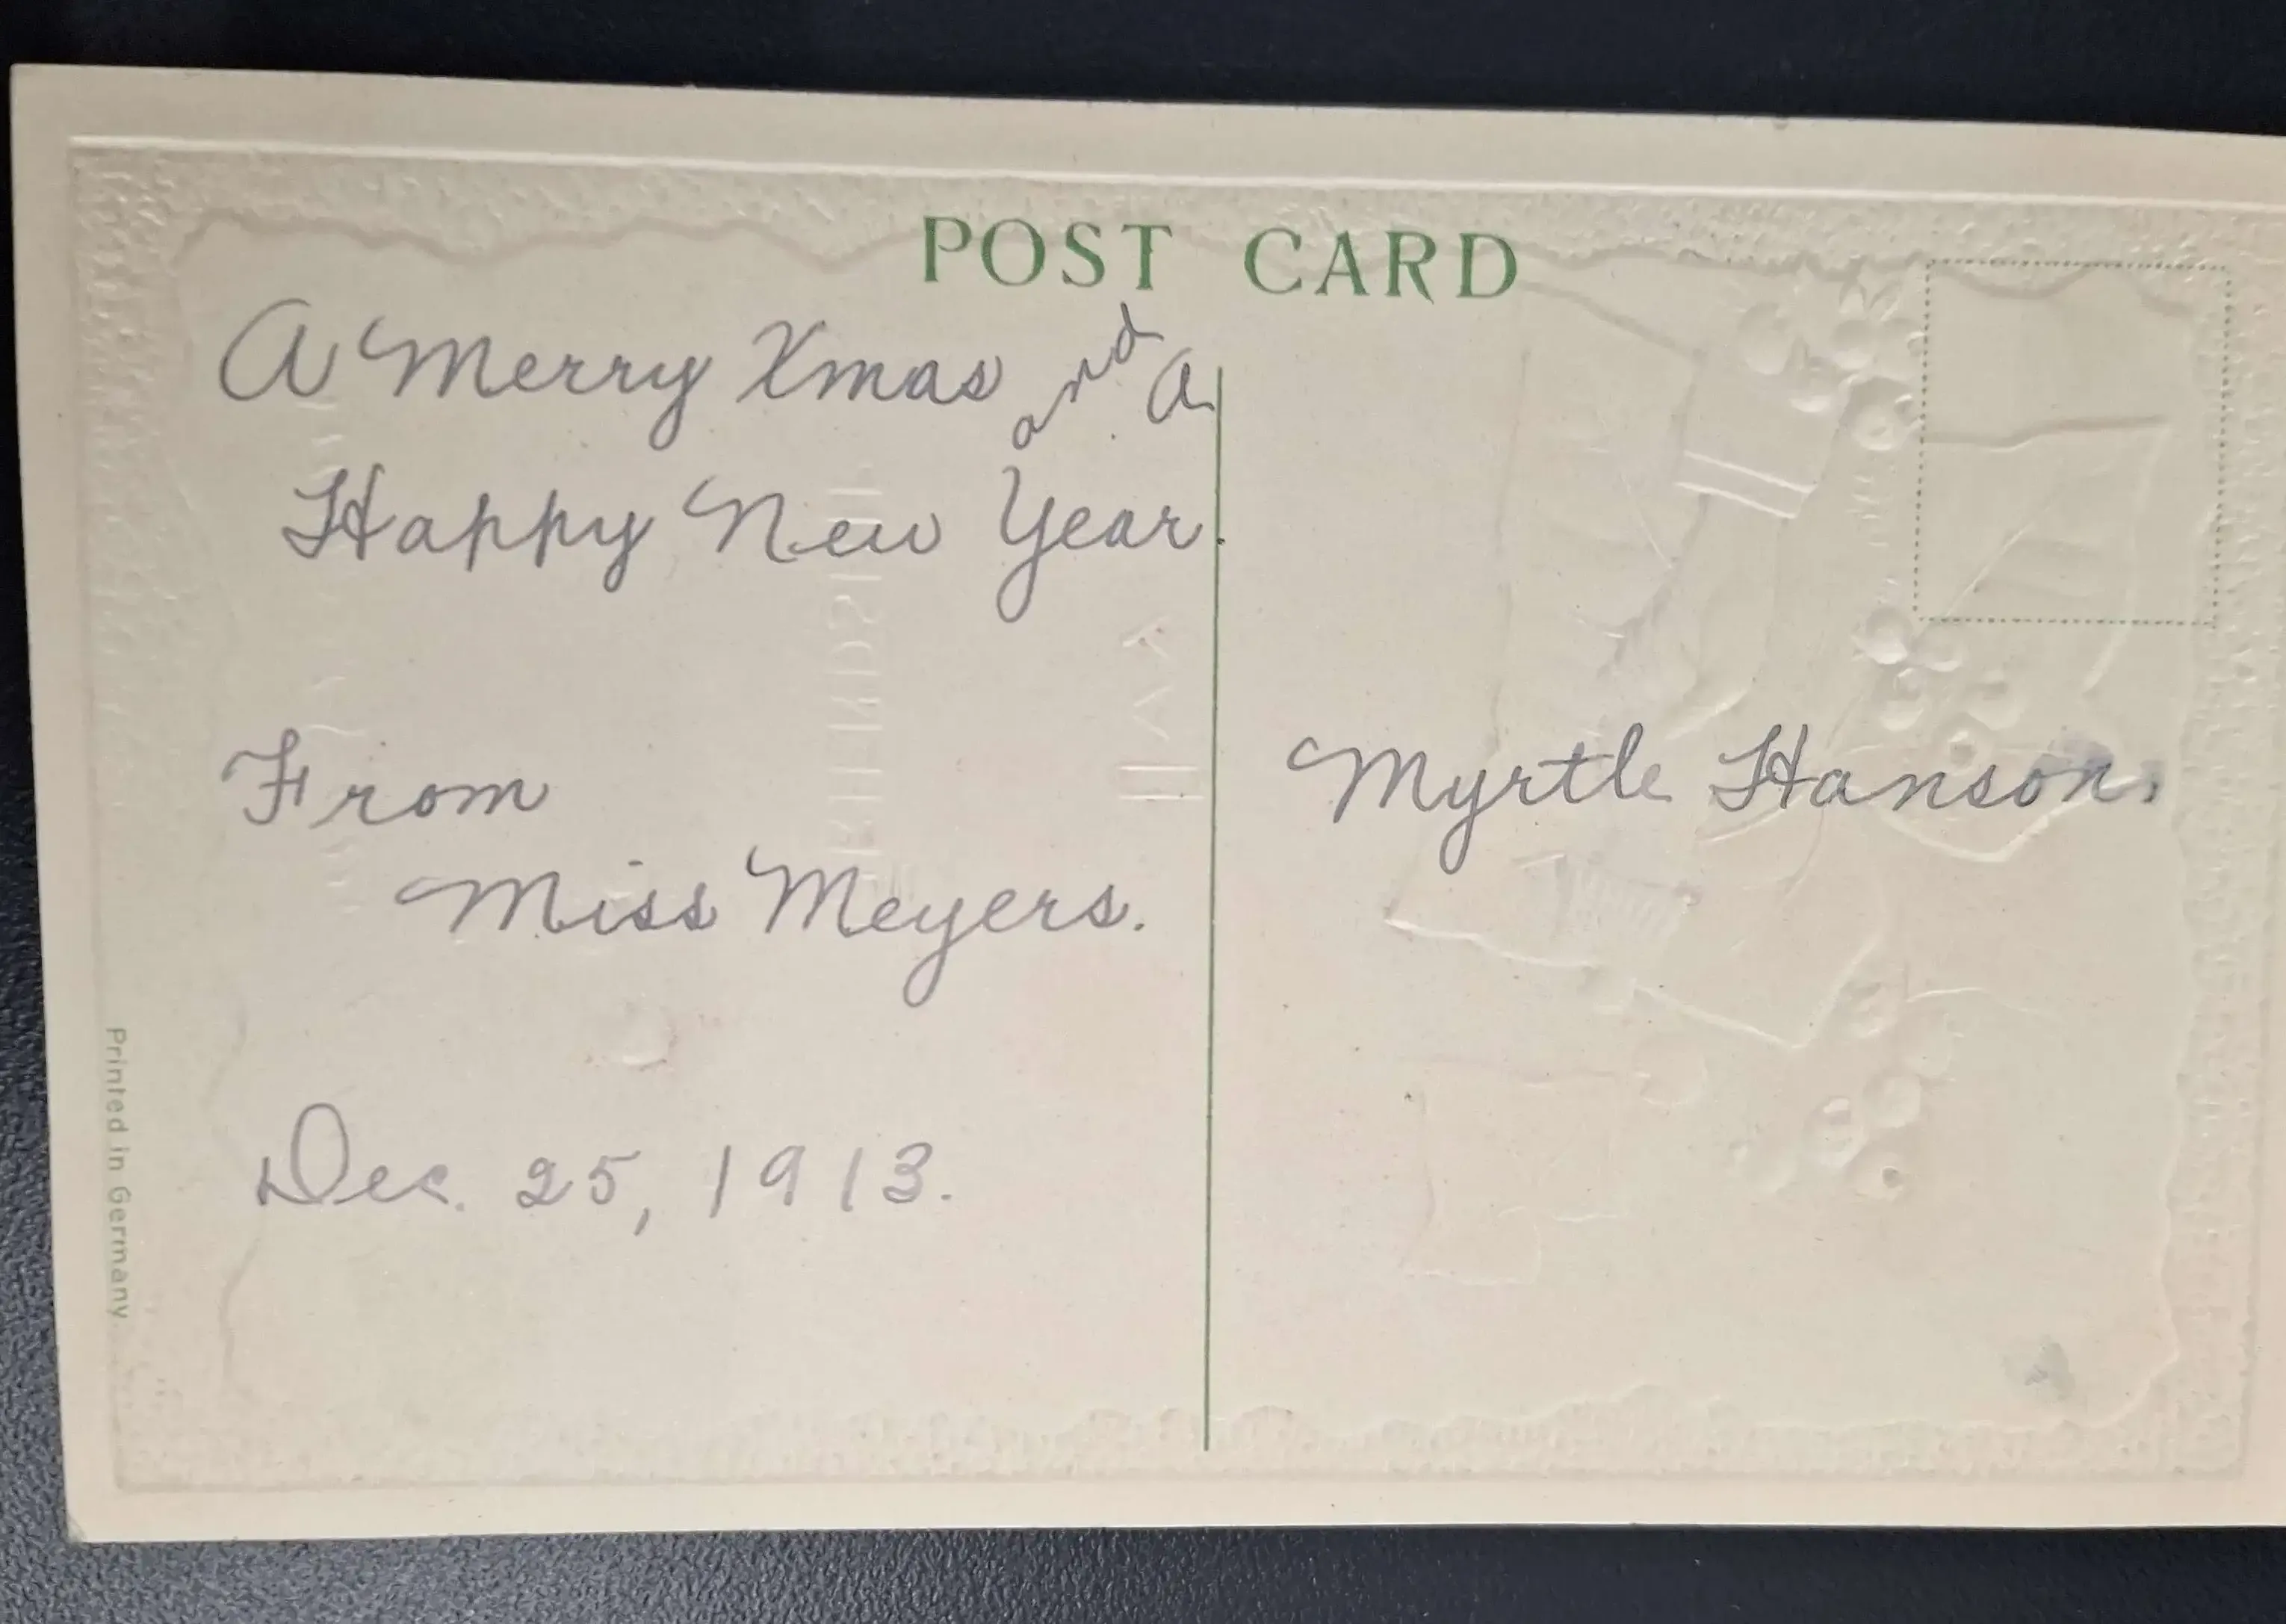 POST CARD
A Merry Xmas and a
Happy New Year.
From
Miss Meyers.
Dec. 25, 1913.
Myrtle Hanson.
Printed in Germany